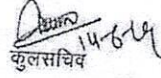 14-6-19
कुलसचिव